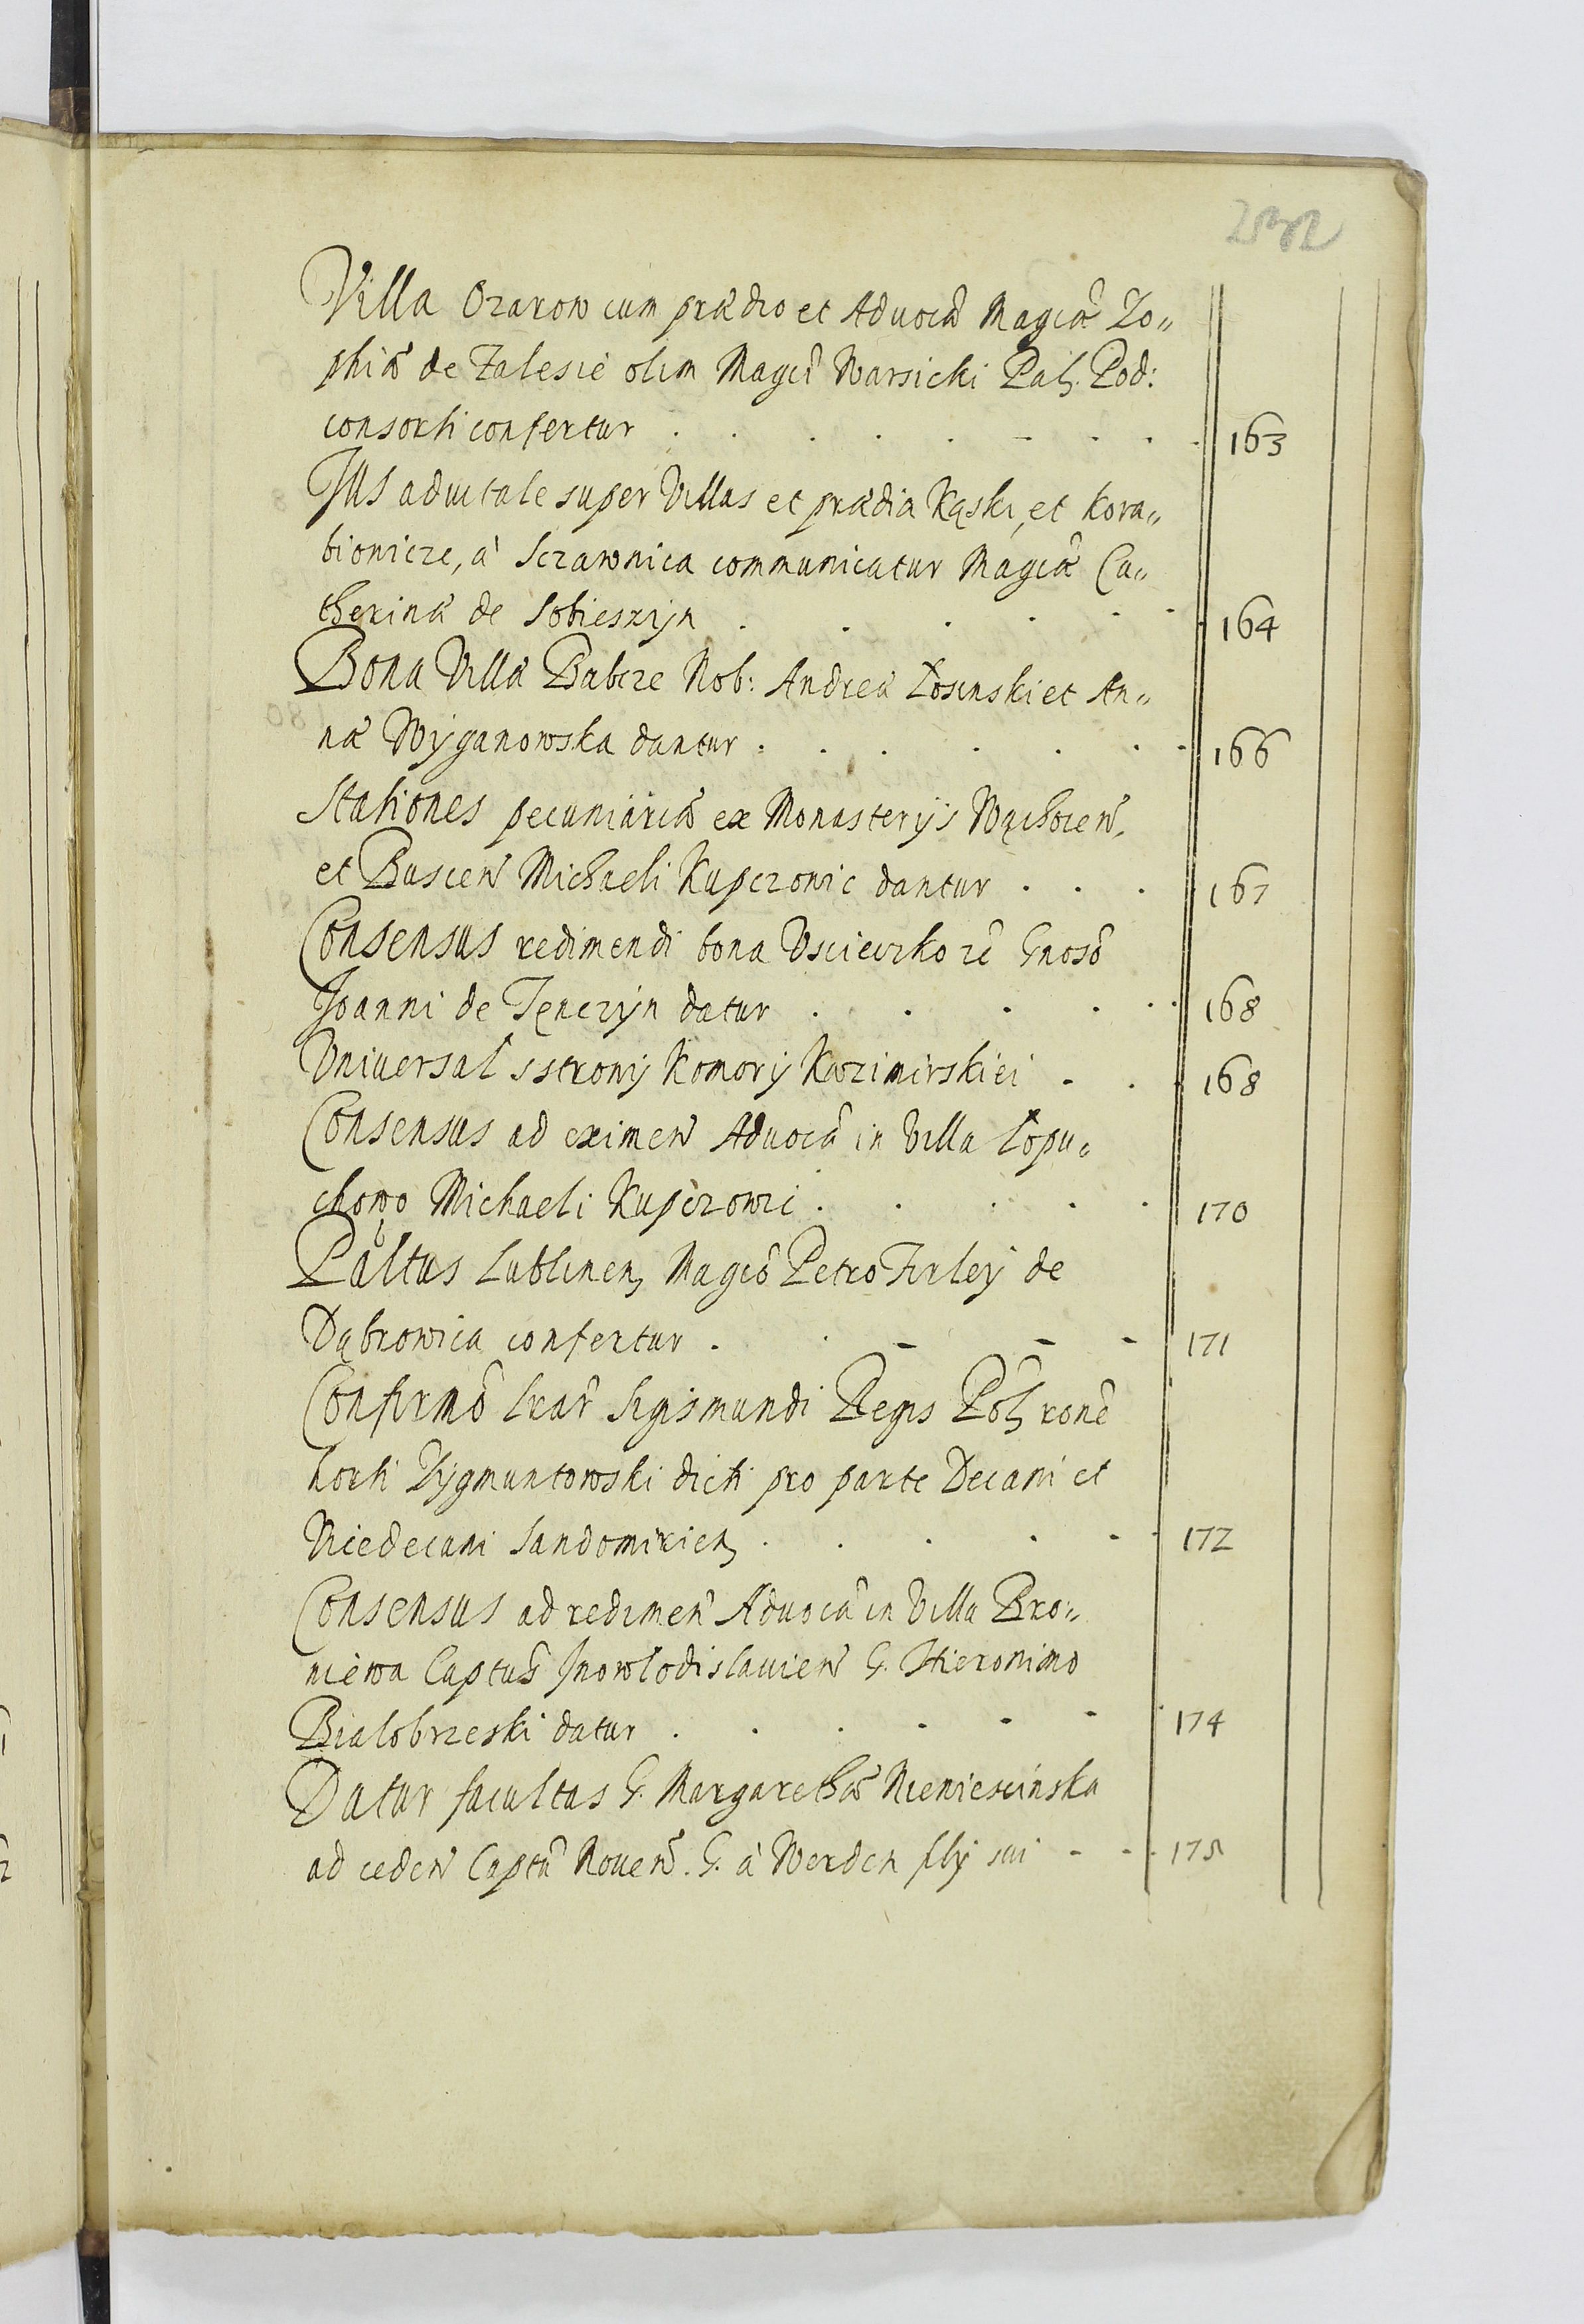 232
Villa Ozarow cum prædio et Advocã Magcæ Zo„
phiæ de Zalesie olim Magci Warsicki Pal. Pod:
consorti confertur . . . . . . . . . 163
Jus aduitale super Villas et prædia Kąski, et Kora„
biowicze, à Sczawnica communicatur Magcæ Ca„
therinæ de Sobieszyn . . . . . . 164
Bona Villæ Babcze Nob: Andreæ Łosinski et An„
næ Wyganowska dantur . . . . . . 166
Stationes pecuniariæ ex Monasterijs Wąchocen̄.
et Buscen̄ Michaeli Kupczowic dantur . . . 167
Consensus redimendi bona Uscieczko rẽ Gnosõ
Joanni de Tęnczyn datur . . . . . . 168
Uniuersał s strony Komory Kazimirskiei . . . 168
Consensus ad eximen̄ Aduocã in Villa Łopu„
chowo Michaeli Kupczowic . . . . . 170
Pałtus Lublinen, Magcõ Petro Firley de
Dąbrowica confertur . . - - - 171
Confirmõ lrar̃ Sigismundi Regis Pol, ronẽ
horti Zygmuntowski dicti pro parte Decani et
Vicedecani Sandomirien, . . . . . . 172
Consensus ad redimen̄ Aduocã in Villa Bro„
niewa Captus̃ Jnowlodislauien̄ G. Hieronimo
Bialobrzeski datur . . . . . . 174
Datur facultas G. Margarethæ Niemiescinska
ad ceden̄ Captũ Nouen̄. G. à Werden flij sui - - - 175